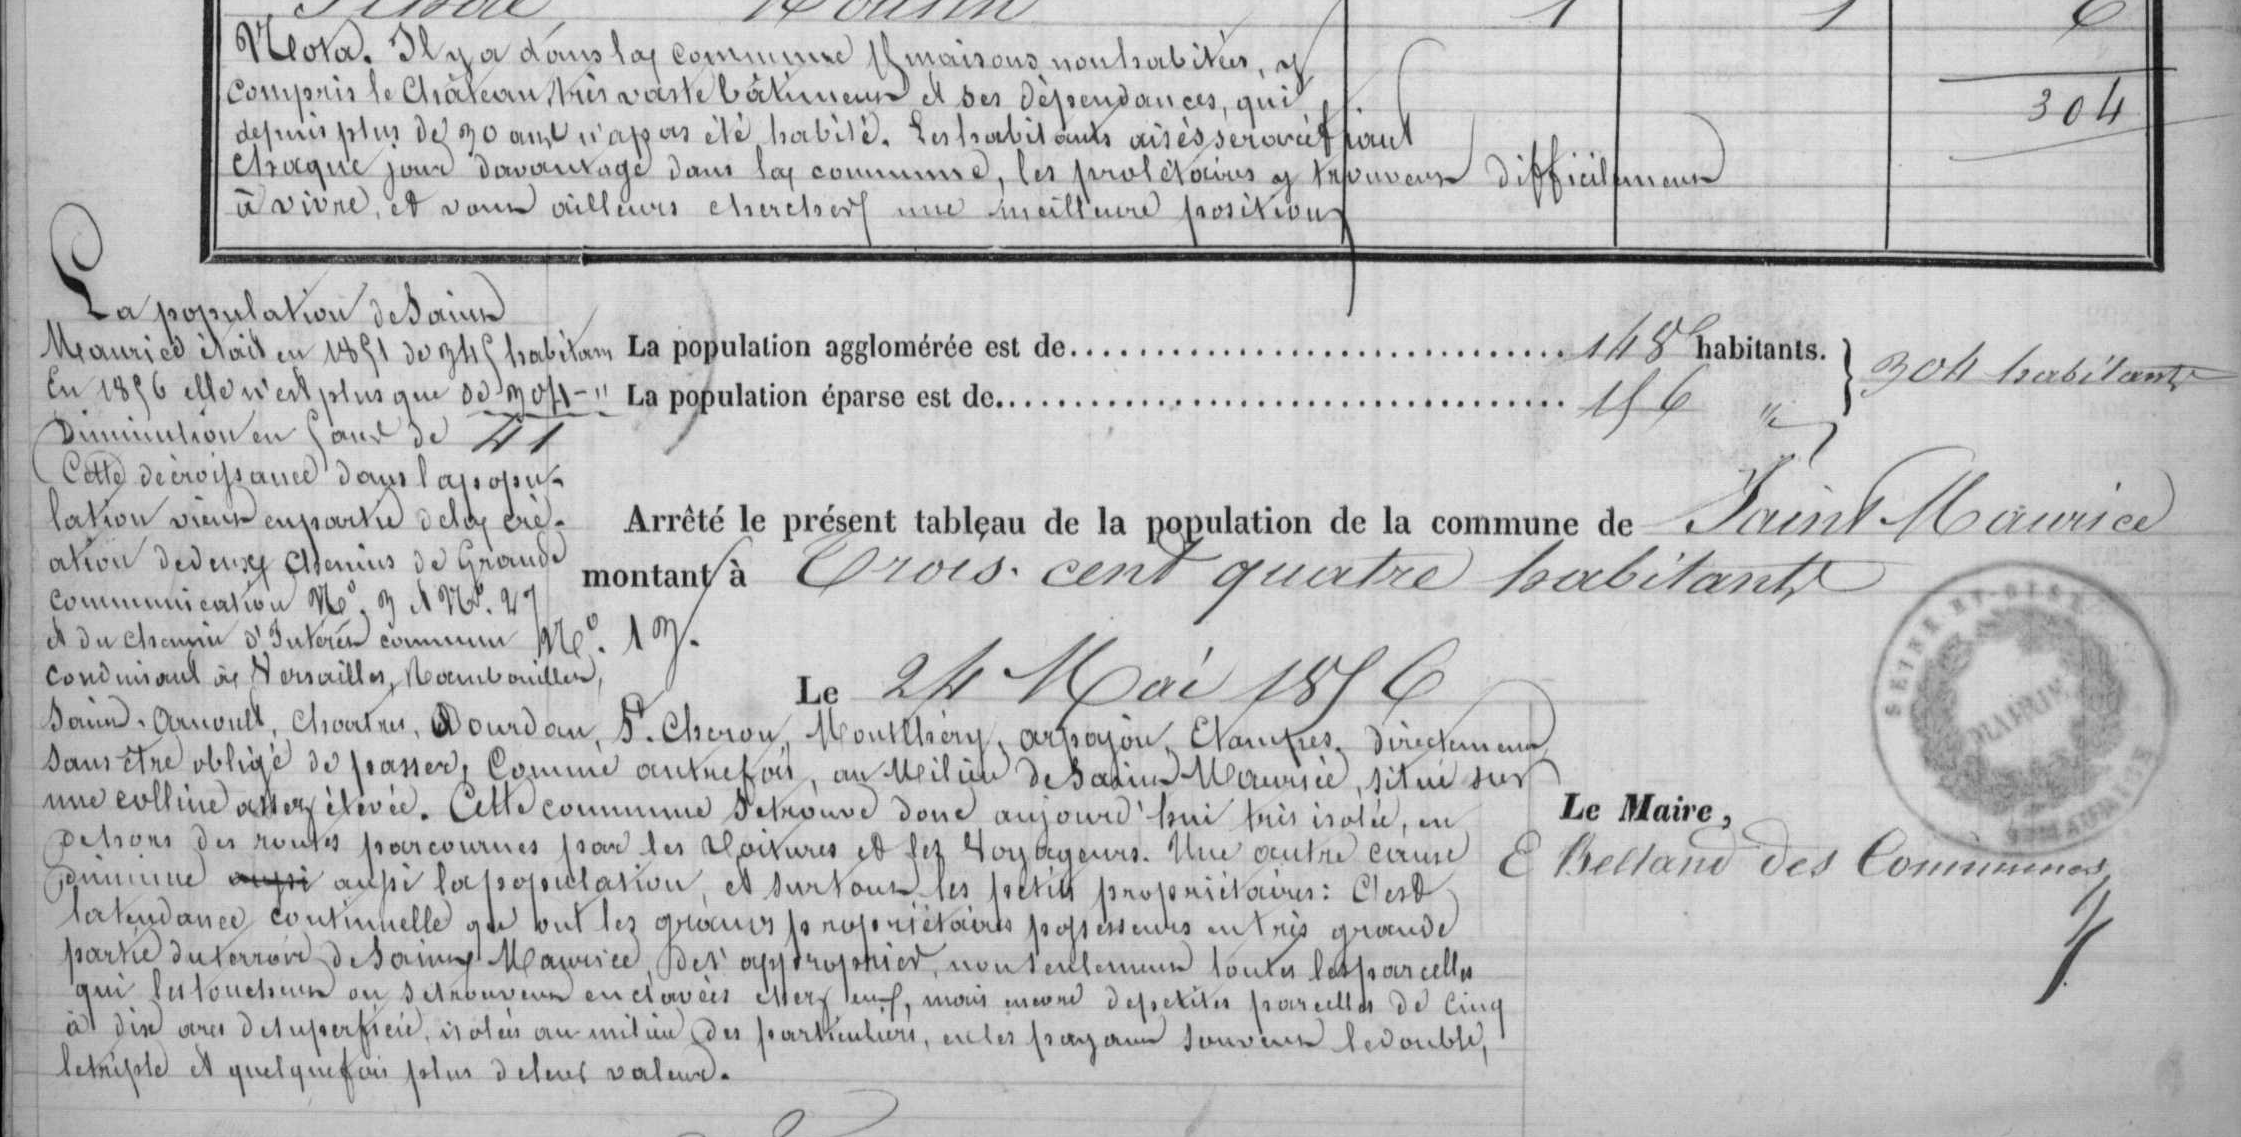 Moulin 1 1 6
Nota. Il y a dans la commune maisons non habitées, y
compris le Château, très vaste bâtiment et ses dépendances, qui
depuis plus de 30 ans n'a pas été habité. Les habitants aisés se raréfiant
chaque jour davantage dans la commune, les prolétaires y trouvent difficilement
à vivre, et vont ailleurs chercher une meilleure position
304
La population de Saint
Maurice était en 1851 de 345 habitans
En 1856 elle n'est plus que de 304 - "
Diminution en 5 ans de 41
Cette décroissance dans la popu-
lation vient en partie de la cré-
ation de deux chemins de Grande
communication No. 3 et No. 27
et du chemin d'Intérêt commun No. 13.
conduisant à Versailles, Rambouillet,
Saint-Arnoult, Chartres, Dourdan, St. Cheron, Montlhéry, Arpajon, Etampes, directement
sans être obligé de passer, comme autrefois, au Milieu de Saint Maurice, situé sur
une colline assez élevée. Cette commune se trouve donc aujourd'hui très isolée, en
dehors des routes parcourues par les Voitures et les Voyageurs. Une autre cause
diminue aussi aussi la population, et surtout les petits propriétaires: C'est
la tendance continuelle qu'ont les grands propriétaires possesseurs en très grande
partie du terroir de Saint Maurice, de s'approprier, non seulement toutes les parcelles
qui les touchent ou se trouvent enclavées chez eux, mais encore de petites parcelles de cinq
à dix ares de superficie, isolées au milieu des particuliers, en les payant souvent le double,
le triple et quelquefois plus de leur valeur.
La population agglomérée est de 148 habitants.
La population éparse est de 156 "
304 habitants
Arrêté le présent tableau de la population de la commune de Saint Maurice
montant à Trois cent quatre habitants
Le 24 Mai 1856
SEINE-ET-OISE
MAIRIE
ST MAURICE
Le Maire,
E Beltand des Communes